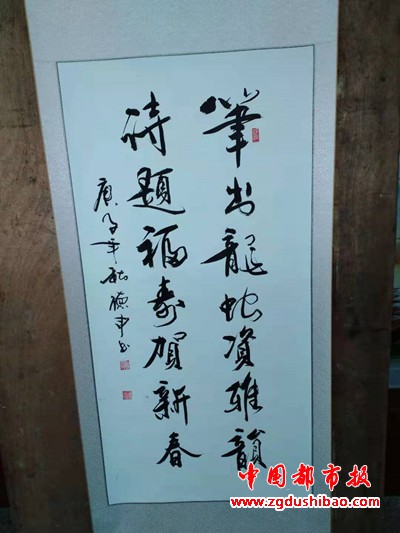 筆出龍蛇資雅韻
詩題福壽賀新春
庚子年德申书
中国都市报
www.zgdushibao.com